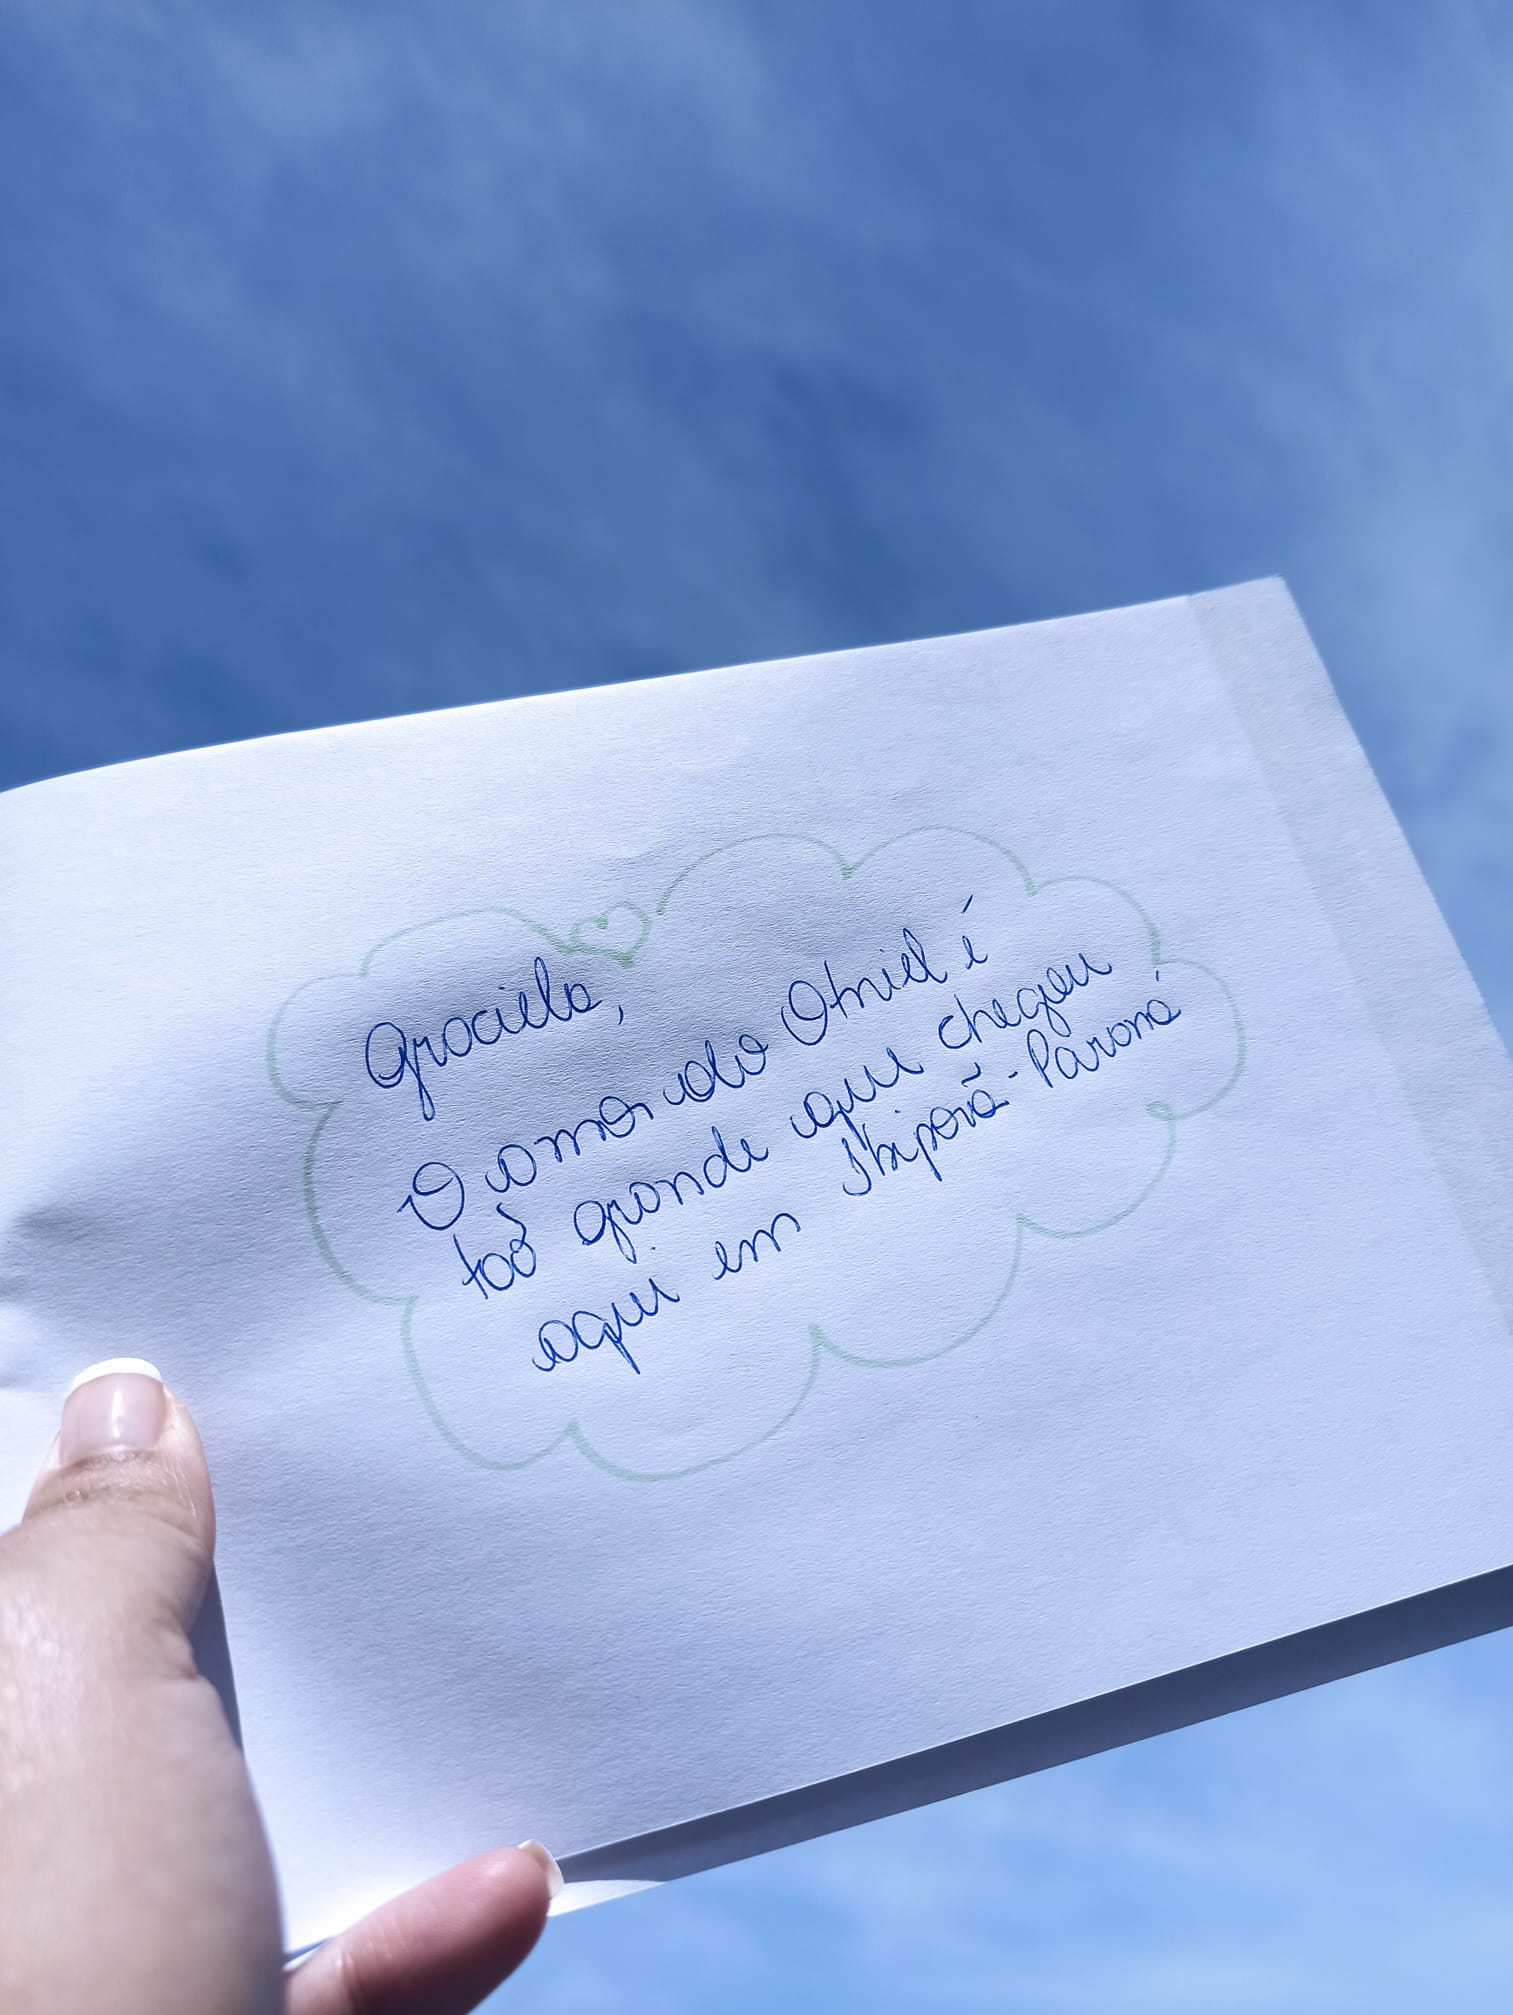 Graciela,
O amor do Otniel é
tão grande que chegou
aqui em Ibiporã-Paraná